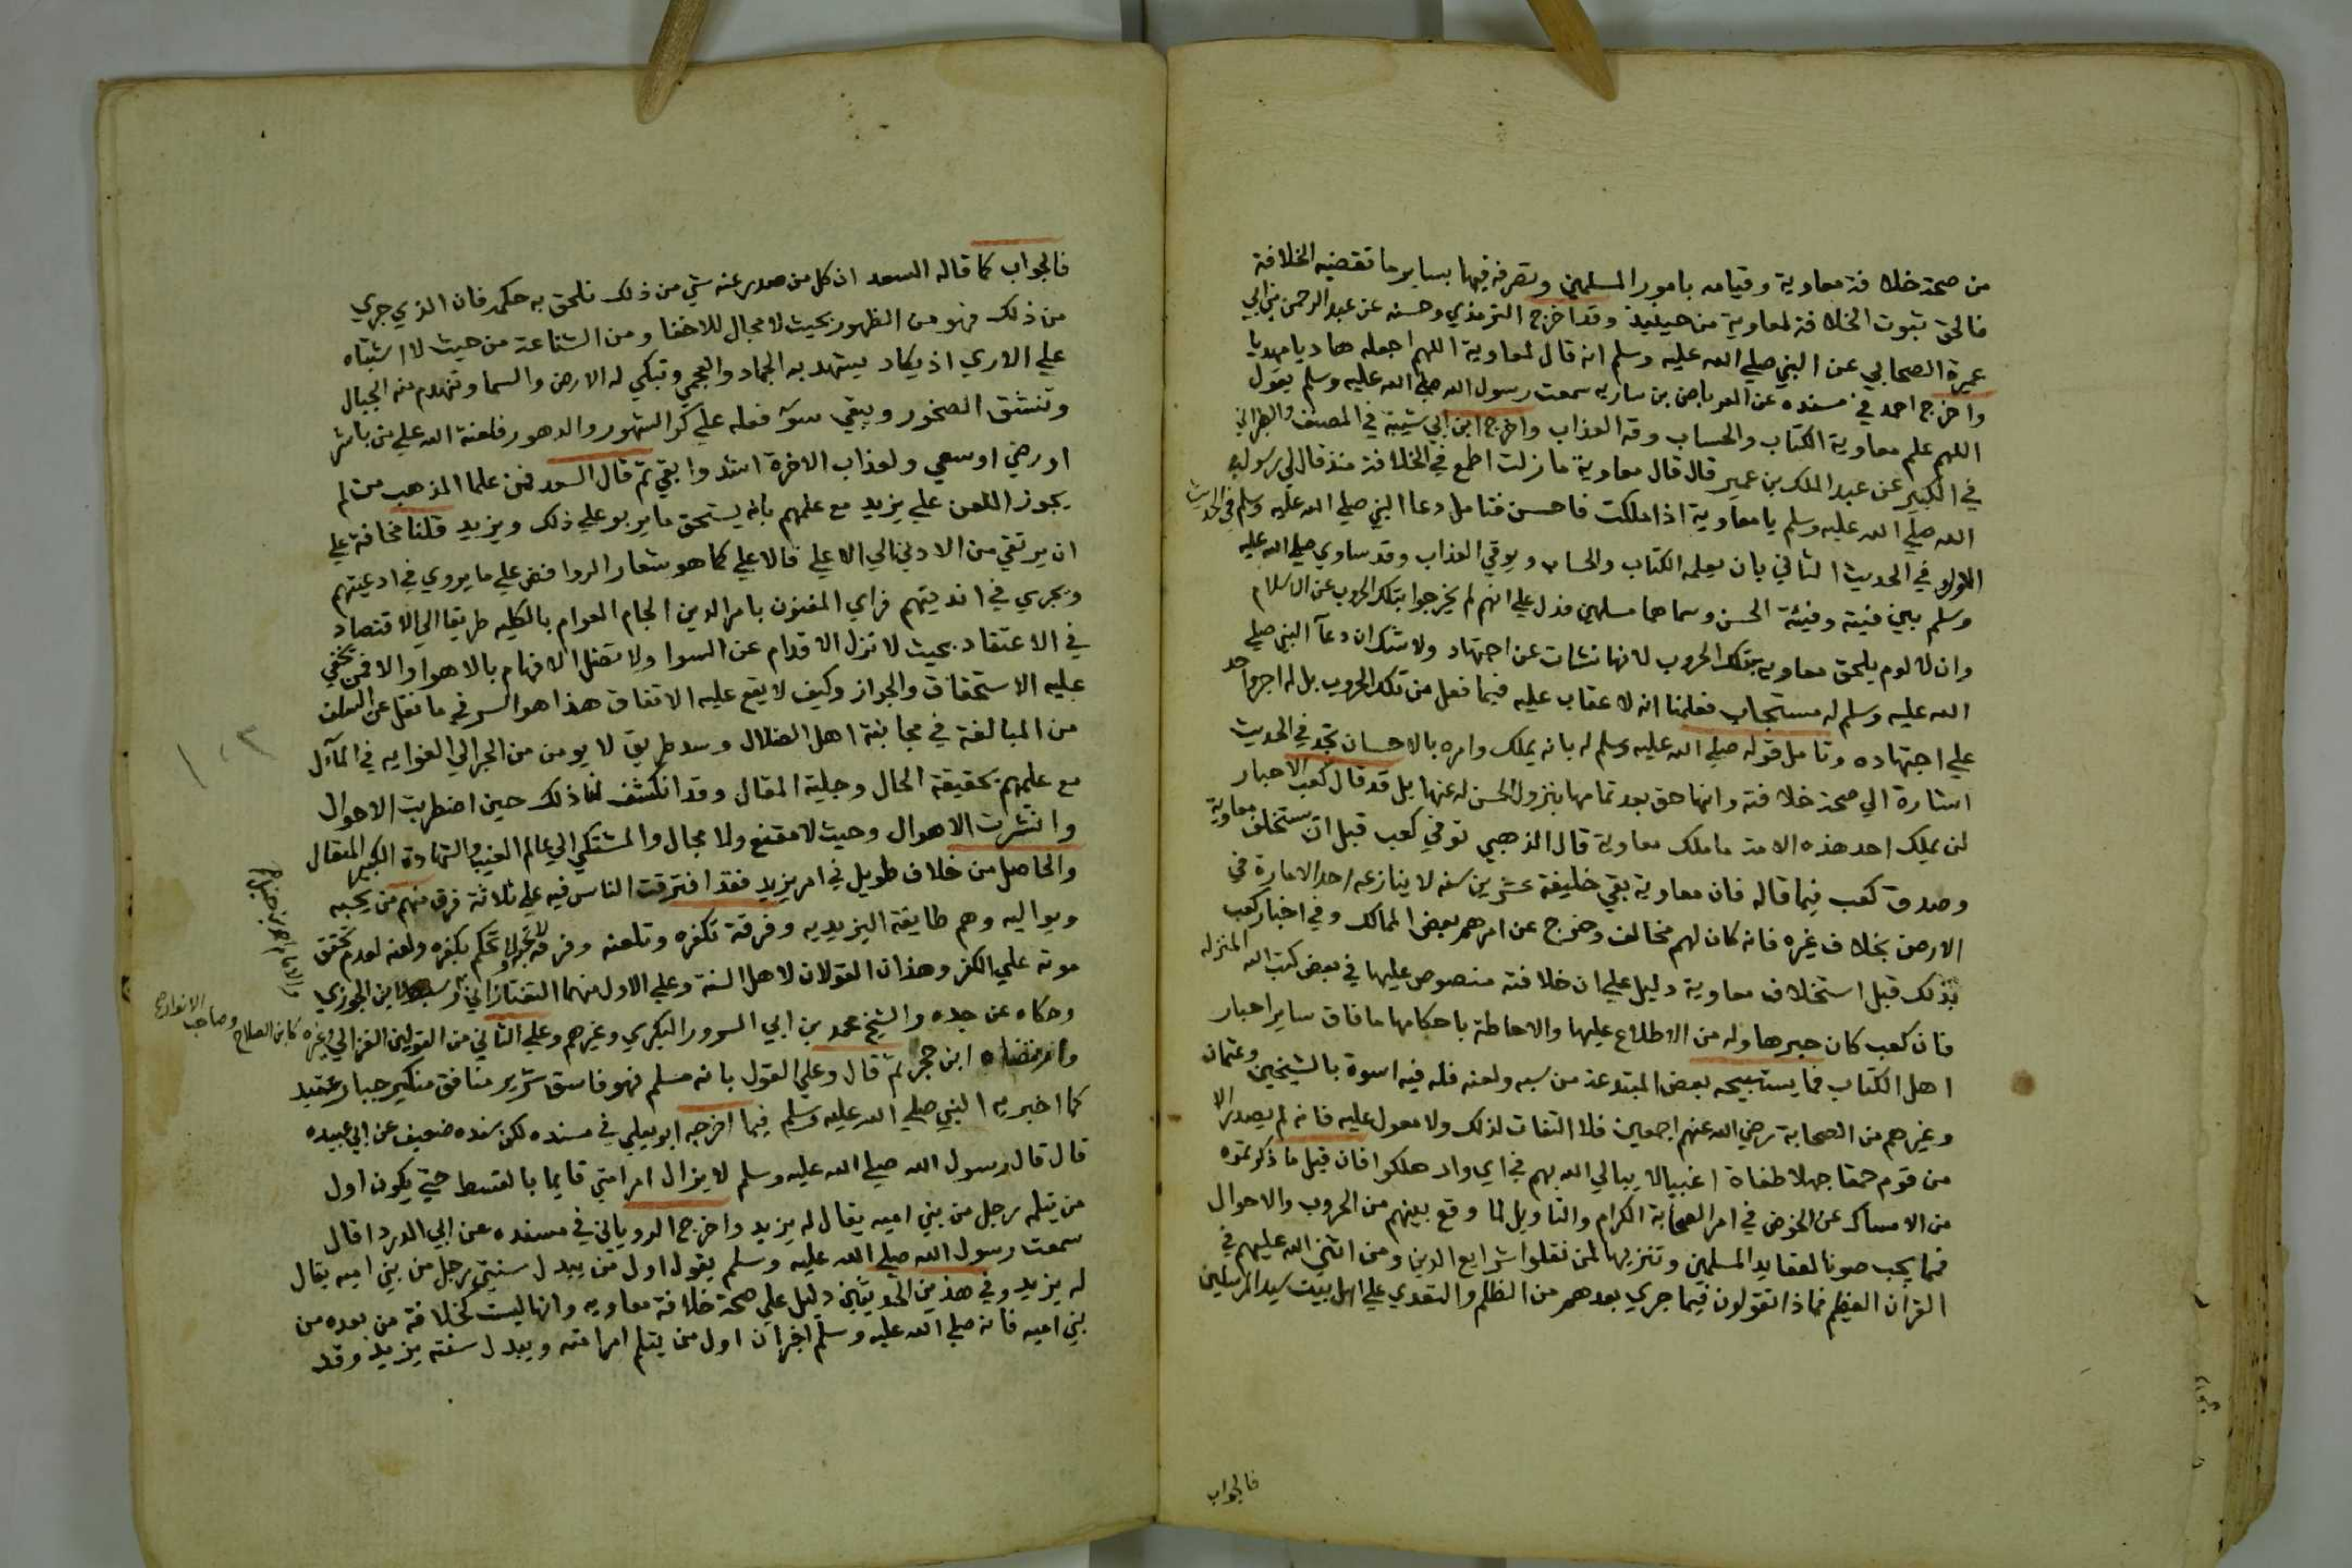 من صحة خلافة معاوية وقيامه بامور المسلمين وتصرفه فيها بساير ما تقضيه الخلافة
فالحق ثبوت الخلافة لمعاوية من حينيذ وقد اخرج الترمذي وحسنه عن عبد الرحمن بن ابي
عميرة الصحابي عن النبي صلي الله عليه وسلم انه قال لمعاوية اللهم اجعله هاديا مهديا
واخرج احمد في مسنده عن العرباض بن ساريه سمعت رسول الله صلي الله عليه وسلم يقول
اللهم علم معاوية الكتاب والحساب وقه العذاب واخرج ابن ابي شيبة في المصنف والطبراني
في الكبير عن عبد الملك بن عمير قال قال معاوية ما زلت اطمع في الخلافة منذ قال لي رسول
الله صلي الله عليه وسلم يا معاوية اذا ملكت فاحسن فتامل دعا النبي صلي الله عليه وسلم في الحديث
الاول وفي الحديث الثاني بان يعلمه الكتاب والحساب ويوقي العذاب وقد ساوي صلي الله عليه
وسلم بين فيته وفيئة الحسن وسماهما مسلمين فدل علي انهم لم يخرجوا بتلك الحروب عن الاسلام
وان لا لوم يلحق معاويه بتلك الحروب لانها نشات عن اجتهاد ولا شك ان دعآ النبي صلي
الله عليه وسلم له مستجاب فعلمنا انه لا عقاب عليه فيما فعل من تلك الحروب بل له اجر واحد
علي اجتهاده وتامل قوله صلي الله عليه وسلم له بانه يملك وامره بالاحسان تجد في الحديث
اشارة الي صحة خلافته وانها حق بعد تمامها بنزول الحسن له عنها بل قد قال كعب الاحبار
لن يملك احد هذه الامة ما ملك معاوية قال الذهبي توفي كعب قبل ان يستخلف معاوية
وصدق كعب فيما قاله فان معاوية بقي خليفة عشرين سنه لا ينازعه احد الامارة في
الارض بخلاف غيره فانه كان لهم مخالف وخرج عن امرهم بعض الممالك وفي اخبار كعب
بذلك قبل استخلاف معاوية دليل علي ان خلافته منصوص عليها في بعض كتب الله المنزله
فان كعب كان حبرها وله من الاطلاع عليها والاحاطة باحكامها ما فاق ساير احبار
اهل الكتاب فما يستبيحه بعض المبتدعة من سبه ولعنه فله فيه اسوة بالشيخين وعثمان
وغيرهم من الصحابة رضي الله عنهم اجمعين فلا التفات لذلك ولا معول عليه فانه لم يصدر الا
من قوم حمقا جهلا طغاة اغبيالا يبالي الله بهم في اي واد هلكوا فان قيل ما ذكرتموه
من الامساك عن الخوض في امر الصحابة الكرام والتاويل لما وقع بينهم من الحروب والاحوال
فما يجب صونا لعقايد المسلمين وتنزيها لمن نقلوا شرايع الدين ومن اثني الله عليهم في
القران العظيم فماذا تقولون فيما جري بعدهم من الظلم والتعدي علي اهل بيت سيد المرسلين
فالجواب
فالجواب كما قاله السعد ان كل من صدر عنه شي من ذلك نلحق به حكمه فان الذي جري
من ذلك فهو من الظهور بحيث لا مجال للاخفا ومن الشناعة من حيث لا اشتباه
علي الاري اذ يكاد يشهد به الجماد والعجمي وتبكي له الارض والسما وتنهدم منه الجبال
وتنشق الصخور ويبقي سوء فعله علي كر الشهور والدهور فلعنة الله علي من باشر
او رضي او سعي ولعذاب الاخرة اشد وابقي ثم قال السعد فمن علما المذهب من لم
يجوز اللعن علي يزيد مع علمهم بانه يستحق ما يربو علي ذلك ويزيد قلنا مخافة علي
ان يرتقي من الادني الي الاعلي فالاعلي كما هو شعار الروافض علي ما يروي في ادعيتهم
ويجري في انديتهم فراي المعنون بامر الدين الجام العوام بالكليه طريقا الي الاقتصاد
في الاعتقاد بحيث لا تزل الاقدام عن السوا ولا تضل الافهام بالاهوا والا فمن يخفي
عليه الاستحقاق والجواز وكيف لا يقع عليه الاتفاق هذا هو السر في ما نقل عن السلف
من المبالغة في مجانبة اهل الضلال وسد طريق لا يومن من الجر الي الغوايه في المآل
مع علمهم بحقيقة الحال وجلية المقال وقد انكشف لنا ذلك حين اضطربت الاحوال
وانتشرت الاهوال وحيث لا مقنع ولا مجال والمشتكي الي عالم الغيب والشهادة الكبير المتعال
والحاصل من خلاف طويل في امر يزيد فقد افترقت الناس فيه علي ثلاثة فرق منهم من يحبه
ويواليه وهم طايفة اليزيديه وفرقة تكفره وتلعنه وفرقة لا تحكم بكفره ولعنه لعدم تحقق
موته علي الكفر وهذان القولان لاهل السنة وعلي الاول منهما التفتازاني وسبط ابن الجوزي
وحكاه عن جده والشيخ محمد بن ابي السرور البكري وغيرهم وعلي الثاني من القولين الغزالي وغيره كابن الصلاح وصاحب الانوار
وارتضاه ابن حجر ثم قال وعلي القول بانه مسلم فهو فاسق شرير منافق متكبر جبار عنيد
كما اخبر به النبي صلي الله عليه وسلم فيما اخرجه ابو يعلي في مسنده لكن بسنده ضعيف عن ابي عبيده
قال قال رسول الله صلي الله عليه وسلم لا يزال امر امتي قايما بالقسط حتي يكون اول
من يثلمه رجل من بني اميه يقال له يزيد واخرج الروياني في مسنده عن ابي الدردا قال
سمعت رسول الله صلي الله عليه وسلم يقول اول من يبدل سنتي رجل من بني اميه يقال
له يزيد وفي هذين الحديثين دليل علي صحة خلافة معاويه وانها ليست كخلافة من بعده من
بني اميه فانه صلي الله عليه وسلم اخبر ان اول من يثلم امر امته ويبدل سنته يزيد وقد